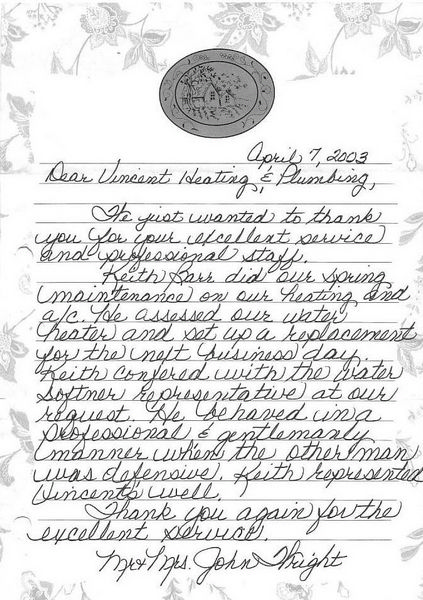 April 7, 2003
Dear Vincent Heating & Plumbing,
We just wanted to thank
you for your excellent service
and professional staff.
Keith Karr did our spring
maintenance on our heating and
a/c. He assessed our water
heater and set up a replacement
for the next business day.
Keith confered with the water
softner representative at our
request. He behaved in a
professional & gentlemanly
manner when the other man
was defensive. Keith represented
Vincent's well.
Thank you again for the
excellent service.
Mr & Mrs. John Wright